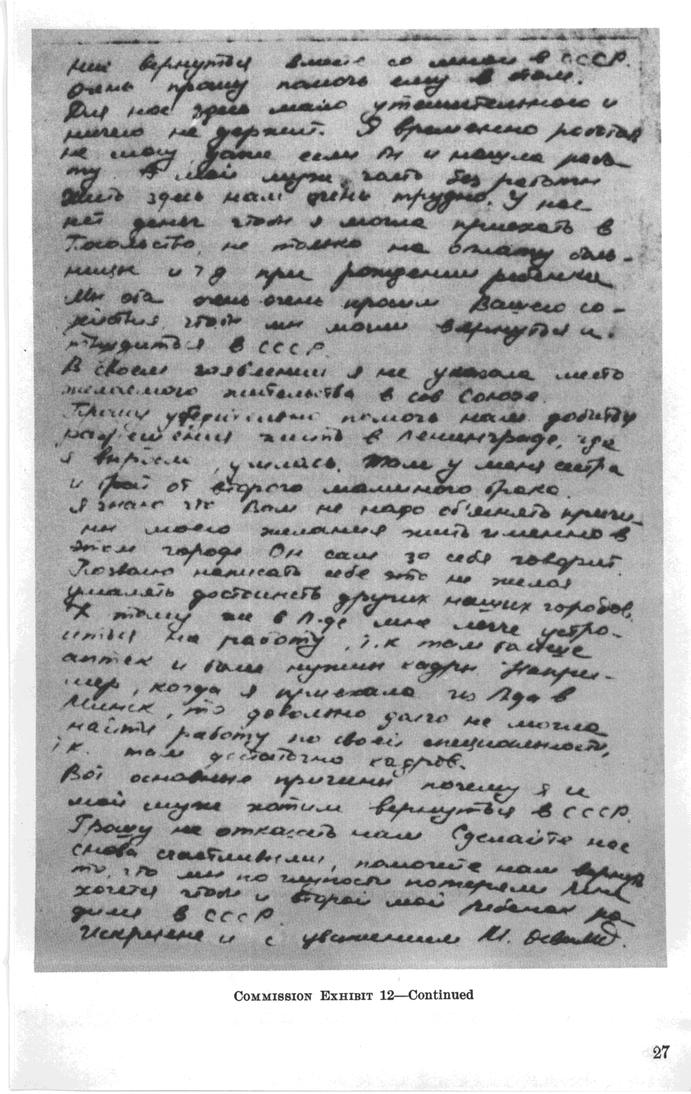 ние вернуться вместе со мной в СССР.
Очень прошу помочь ему в этом.
Для нас здесь мало утешительного и
ничего не держит. Я временно работать
не могу, даже если бы и нашла рабо-
ту. А мой муж часто без работы
Жить здесь нам очень трудно. У нас
нет денег чтобы я могла приехать в
Посольство, не только на оплату боль-
ницы и тд при рождении ребенка
Мы оба очень-очень просим Вашего со-
действия, чтобы мы могли вернуться и
трудиться в СССР.
В своем заявлении я не указала место
желаемого жительства в сов Союзе.
Прошу убедительно помочь нам добиться
разрешения жить в Ленинграде, где
я выросла, училась. Там у меня сестра
и брат от второго маминого брака.
Я знаю что Вам не надо объяснять причи-
ны моего желания жить именно в
этом городе. Он сам за себя говорит.
Позволю написать себе это не желая
умалять достоинств других наших городов.
К тому же в Л-де мне легче устро-
иться на работу, т.к там больше
аптек и были нужны кадры. Напри-
мер, когда я приехала из Лда в
Минск, то довольно долго не могла
найти работу по своей специальности,
т.к. там достаточно кадров.
Вот основные причины почему я и
мой муж хотим вернуться в СССР.
Прошу не отказать нам Сделайте нас
снова счастливыми, помогите нам вернуть
то, что мы по глупости потеряли
хочется чтобы и второй мой ребенок ро-
дился в СССР.
Искренне и с уважением М. Освальд.
COMMISSION EXHIBIT 12—Continued
27